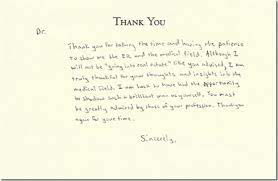 THANK YOU
Dr.
Thank you for taking the time and having the patience
to show me the ER and the medical field. Although I
will not be "going into real estate" like you advised, I am
truly thankful for your thoughts and insights into the
medical field. I am luck to have had the opportunity
to shadow such a brilliant man as yourself. You must
be greatly admired by those of your profession. Thank you
again for your time.
Sincerely,